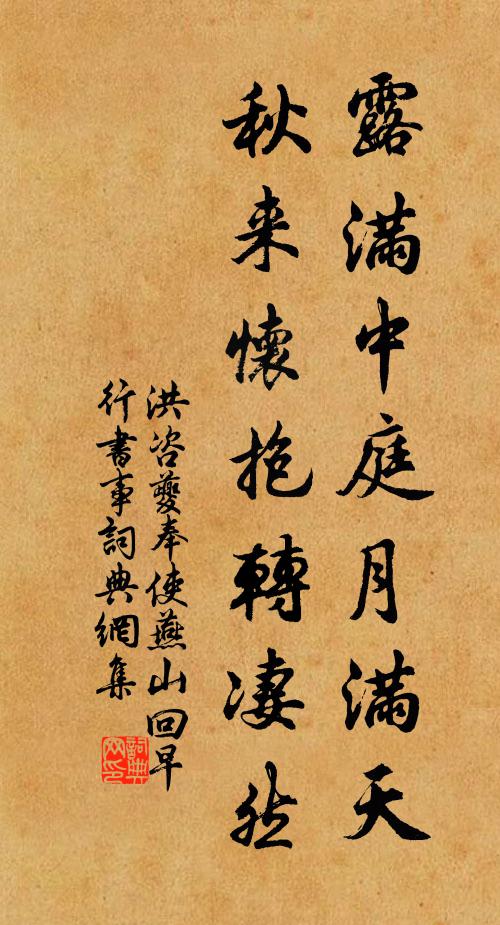 露滿中庭月滿天
秋来懷抱轉凄然
洪咨夔奉使燕山回早
行書事詞典網集
詞典网印